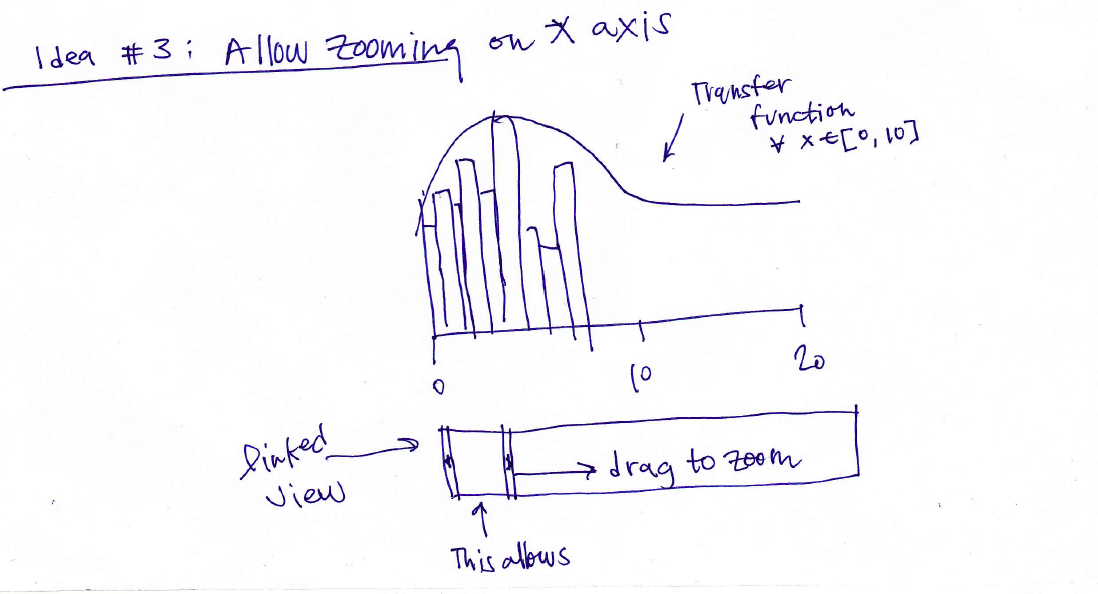 Idea #3: Allow Zooming on X axis
Transfer
function
∀ x ∈ [0, 10]
0
10
20
linked
view
drag to zoom
This allows